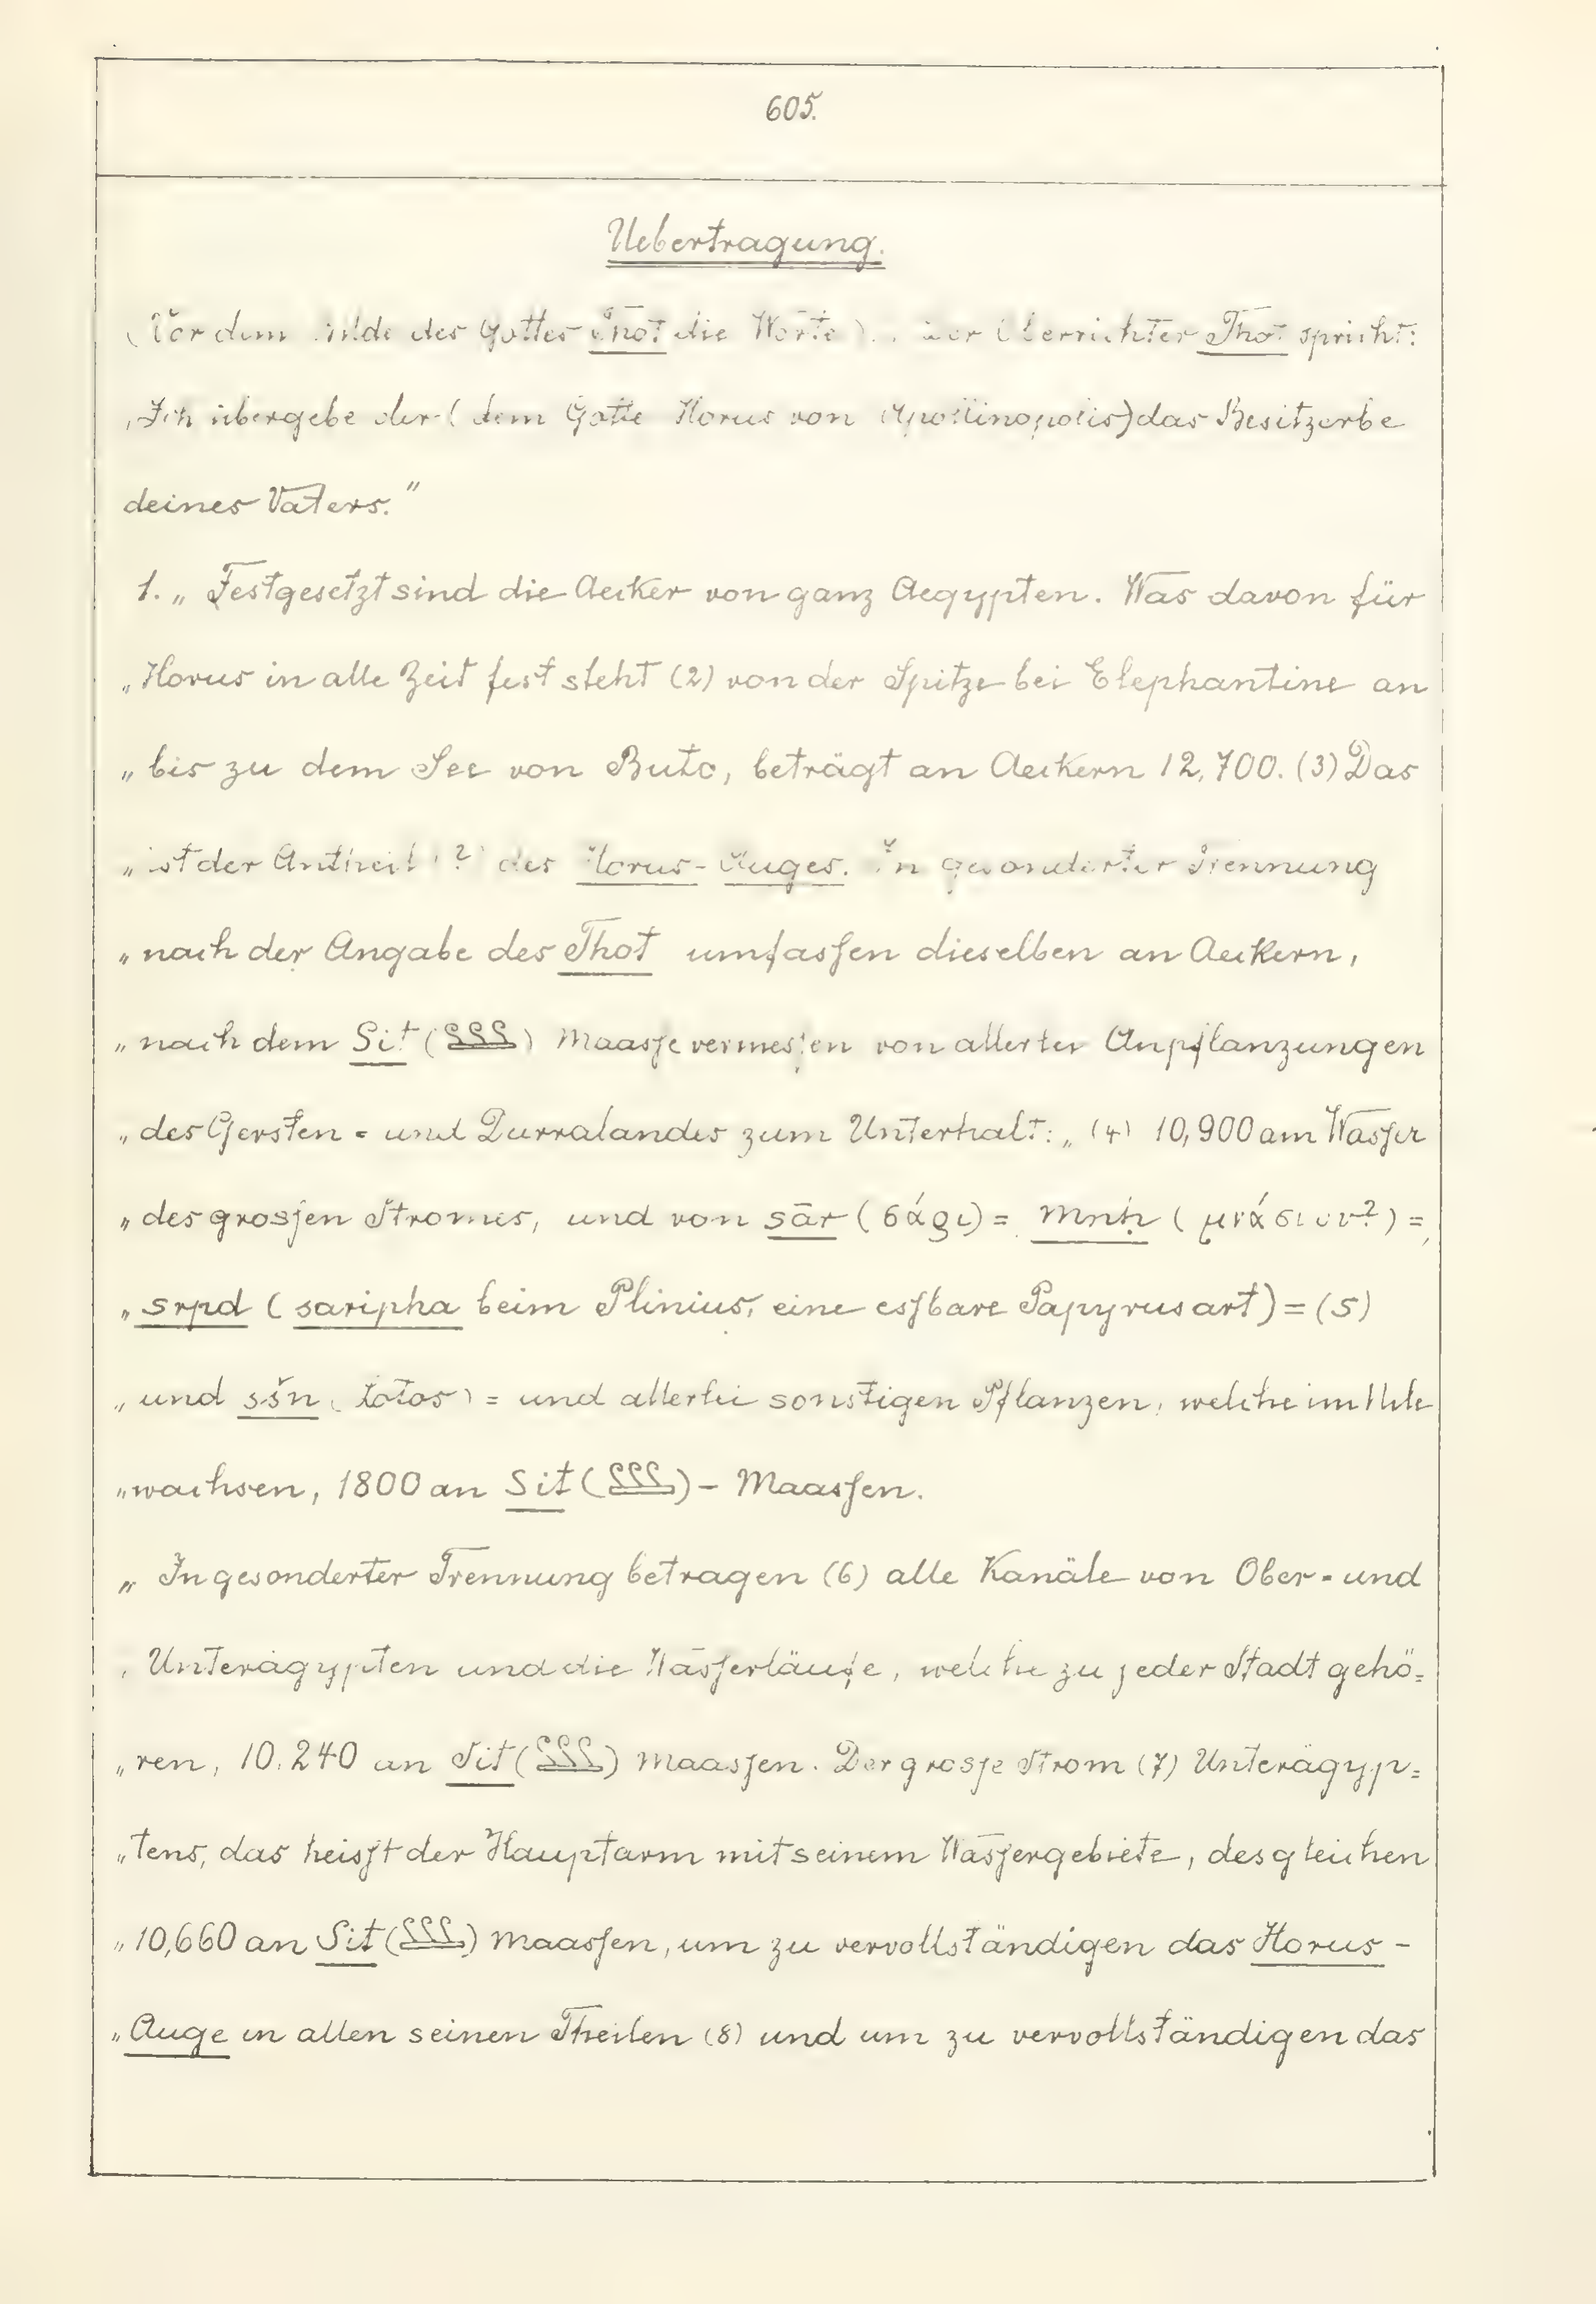 605.
Uebertragung.
(Vor dem Bilde des Gottes Thot die Worte) der Oberrichter Thot spricht:
„Ich übergebe dir (dem Gotte Horus von Apollinopolis) das Besitzerbe
deines Vaters.“
1. „Festgesetzt sind die Aecker von ganz Aegypten. Was davon für
„Horus in alle Zeit fest steht (2) von der Spitze bei Elephantine an
„bis zu dem See von Buto, beträgt an Aeckern 12,700. (3) Das
„ist der Antheil (?) des Horus-Auges. In gesonderter Trennung
„nach der Angabe des Thot umfassen dieselben an Aeckern,
„nach dem Sit (𓇏) Maasse vermessen von allerlei Anpflanzungen
„des Gersten- und Durralandes zum Unterhalt: „(4) 10,900 am Wasser
„des grossen Stromes, und von sār (σάρι) = mnḥ (μνάσιον?) =
„srpd (saripha beim Plinius, eine essbare Papyrusart) = (5)
„und sšn (Lotos) = und allerlei sonstigen Pflanzen, welche im Nile
„wachsen, 1800 an Sit (𓇏) - Maassen.
„In gesonderter Trennung betragen (6) alle Kanäle von Ober- und
„Unterägypten und die Wasserläufe, welche zu jeder Stadt gehö=
„ren, 10.240 an Sit (𓇏) Maassen. Der grosse Strom (7) Unterägyp=
„tens, das heisst der Hauptarm mit seinem Wassergebiete, desgleichen
„10,660 an Sit (𓇏) Maassen, um zu vervollständigen das Horus-
„Auge in allen seinen Theilen (8) und um zu vervollständigen das